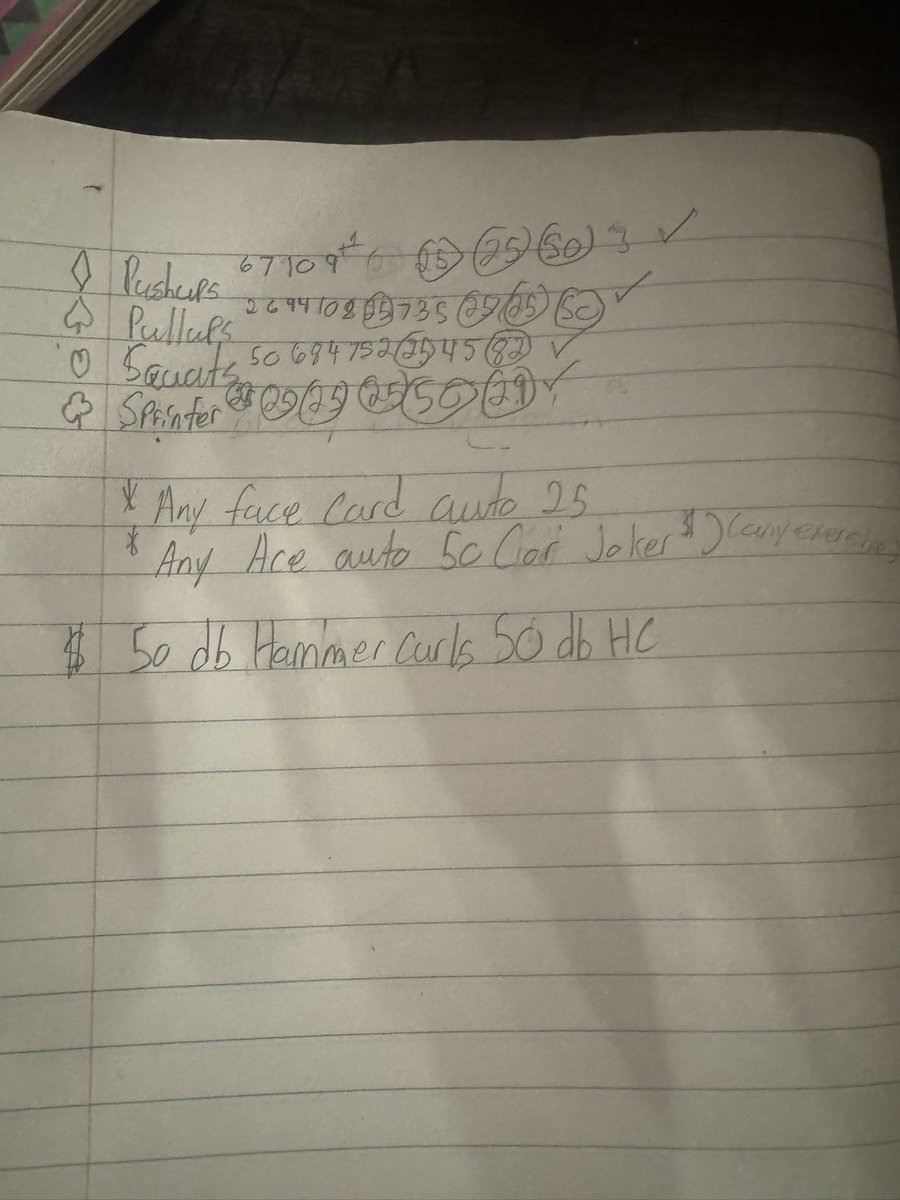 ♢ Pushups 6 7 10 9 +1 25 25 50 3 ✓
♤ Pullups 2 6 9 4 10 8 25 7 3 5 25 25 50 ✓
♡ Squats 50 6 8 4 7 5 2 25 4 5 82 ✓
♧ Sprinter 25 25 25 25 50 29 ✓
* Any face card auto 25
* Any Ace auto 50 (or Joker $) (any exercise)
$ 50 db Hammer Curls 50 db HC